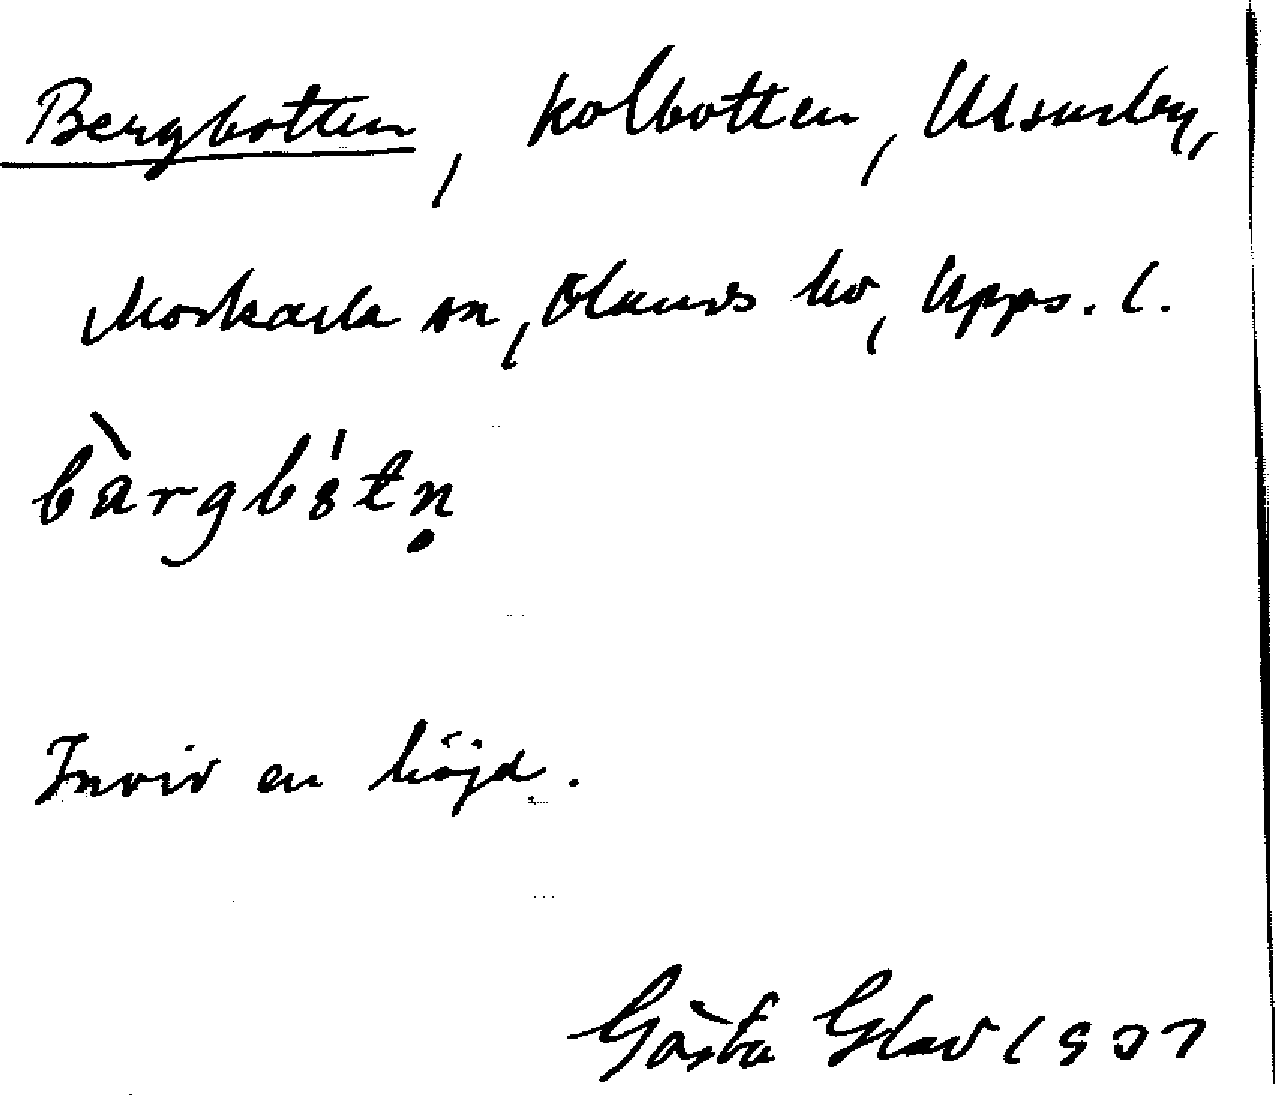 Bergbotten, kolbotten, Ulsarby,
Morkarla sn, Olands hd, Upps. l.
bàrgb8́tṇ
Invid en höjd.
Gösta Glad 1937